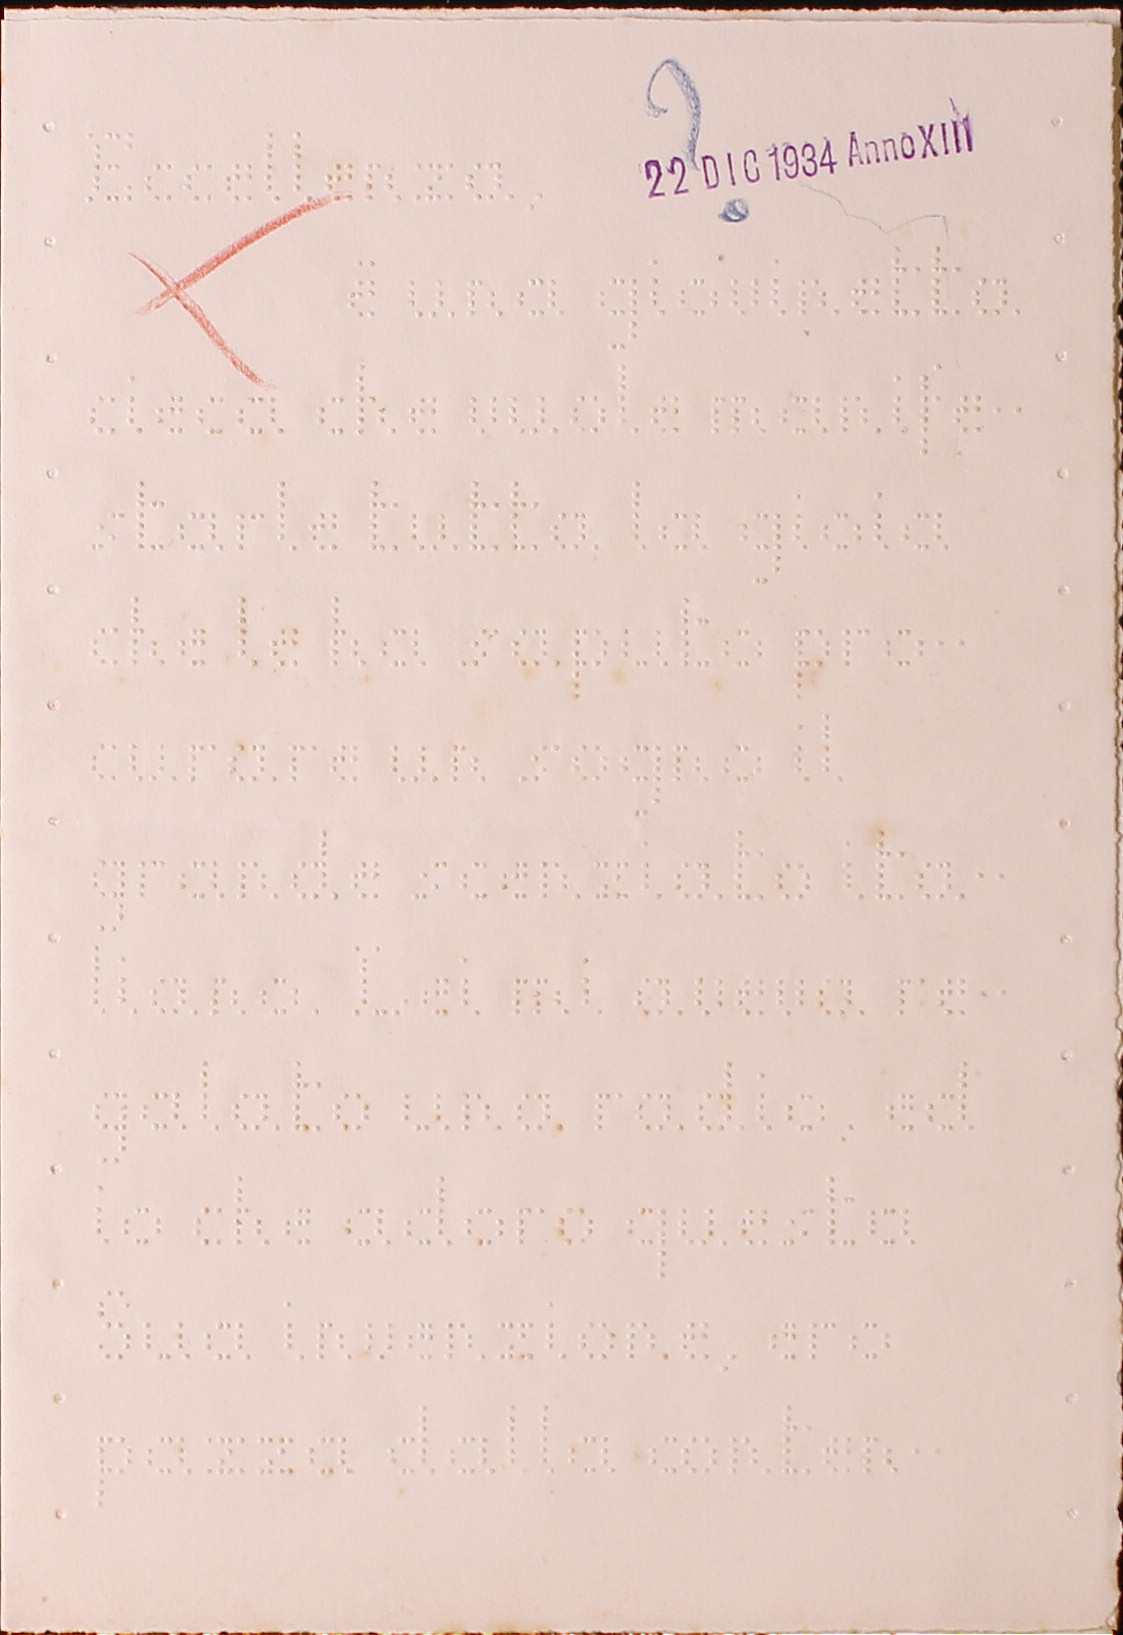 22 DIC 1934 Anno XIII
Eccellenza,
è una giovinetta
cieca che vuole manife-
starle tutta la gioia
che le ha saputo pro-
curare un sogno il
grande scenziato ita-
liano. Lei mi aveva re-
galato una radio, ed
io che adoro questa
Sua invenzione, ero
pazza dalla conten-